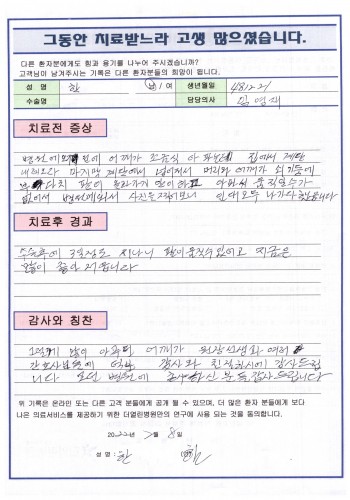 그동안 치료받느라 고생 많으셨습니다.
다른 환자분에게도 힘과 용기를 나누어 주시겠습니까?
고객님이 남겨주시는 기록은 다른 환자분들의 희망이 됩니다.
성 명 한 남/여 생년월일 48.12.21
수술명 담당의사
치료전 증상
병원에 오기 전에 어깨가 조금씩 아파 집에서 계단
내려오다 마지막 계단에서 넘어져서 머리와 어깨가
다쳐 팔이 올라가지 않아 아파서 움직일수가
없어서 병원에와서 사진을 찍어보니 인대 모두 나가다 하였습니다
치료후 경과
수술후에 3일정도 지나니 팔이 움직일수 있어고 지금은
많이 좋아 지읍니다
감사와 칭찬
많이 아프던 어깨가 원장선생님과 여러
간호사 감사와 친절하시에 감사드립
니다 모던 병원에 분들 감사드립니다
위 기록은 온라인 또는 다른 고객 분들에게 공개 될 수 있으며, 더 많은 환자 분들에게 보다
나은 의료서비스를 제공하기 위한 더열린병원만의 연구에 사용 되는 것을 동의합니다.
2022년 7월 8일
성 명 : 한